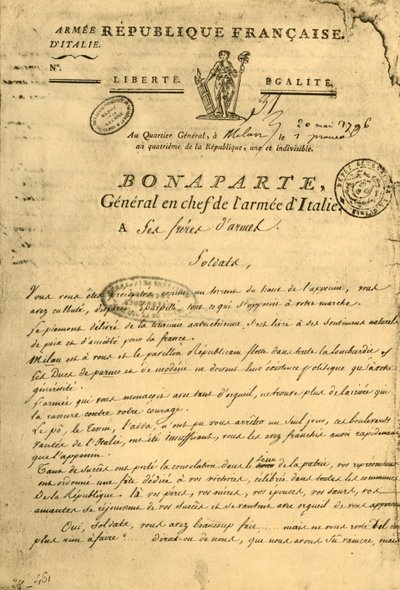 ARMÉE
D'ITALIE.
RÉPUBLIQUE FRANÇAISE.
N.º
LIBERTÉ. ÉGALITÉ.
20 mai 1796
Au Quartier Général, à Milan le 1
an quatrième de la République, une et indivisible.
BONAPARTE,
Général en chef de l'armée d'Italie,
A Ses frères d'armes.
Soldats,
Vous vous êtes précipités comme un torrent du haut de l'apennin, vous
avez culbuté, dispersé, éparpillé tout ce qui s'opposait à votre marche.
Le piemont délivré de la tirannie autrichienne s'est livré à ses sentiments naturels
de paix et d'amitié pour la france.
Milan est à vous et le pavillon Républicain flotte dans toute la lombardie. Les
Ducs de parme et de modène ne doivent leur existence politique qu'à votre
générosité.
L'armée qui vous menaçoit avec tant d'orgueil, ne trouve plus de barrière qui
la rassure contre votre courage.
Le pô, le Tessin, l'adda, n'ont pu vous arrêter un seul jour, ces boulevards
vantés de l'Italie, ont été insuffisants, vous les avez franchis aussi rapidement
que l'apennin.
Tant de succès ont porté la consolation dans le sein de la patrie, vos représentans
ont ordonné une fête dédiée à vos victoires, célébrée dans toutes les communes
de la République. là vos pères, vos mères, vos épouses, vos sœurs, vos
amantes se réjouissent de vos succès et se vantent avec orgueil de vous appartenir
Oui, Soldats, vous avez beaucoup fait.... mais ne vous reste-t-il donc
plus rien à faire? ... dirat-on de nous, que nous avons sû vaincre, mais